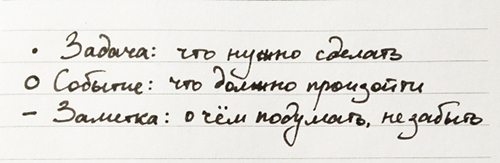 • Задача: что нужно сделать
о Событие: что должно произойти
– Заметка: о чём подумать, не забыть